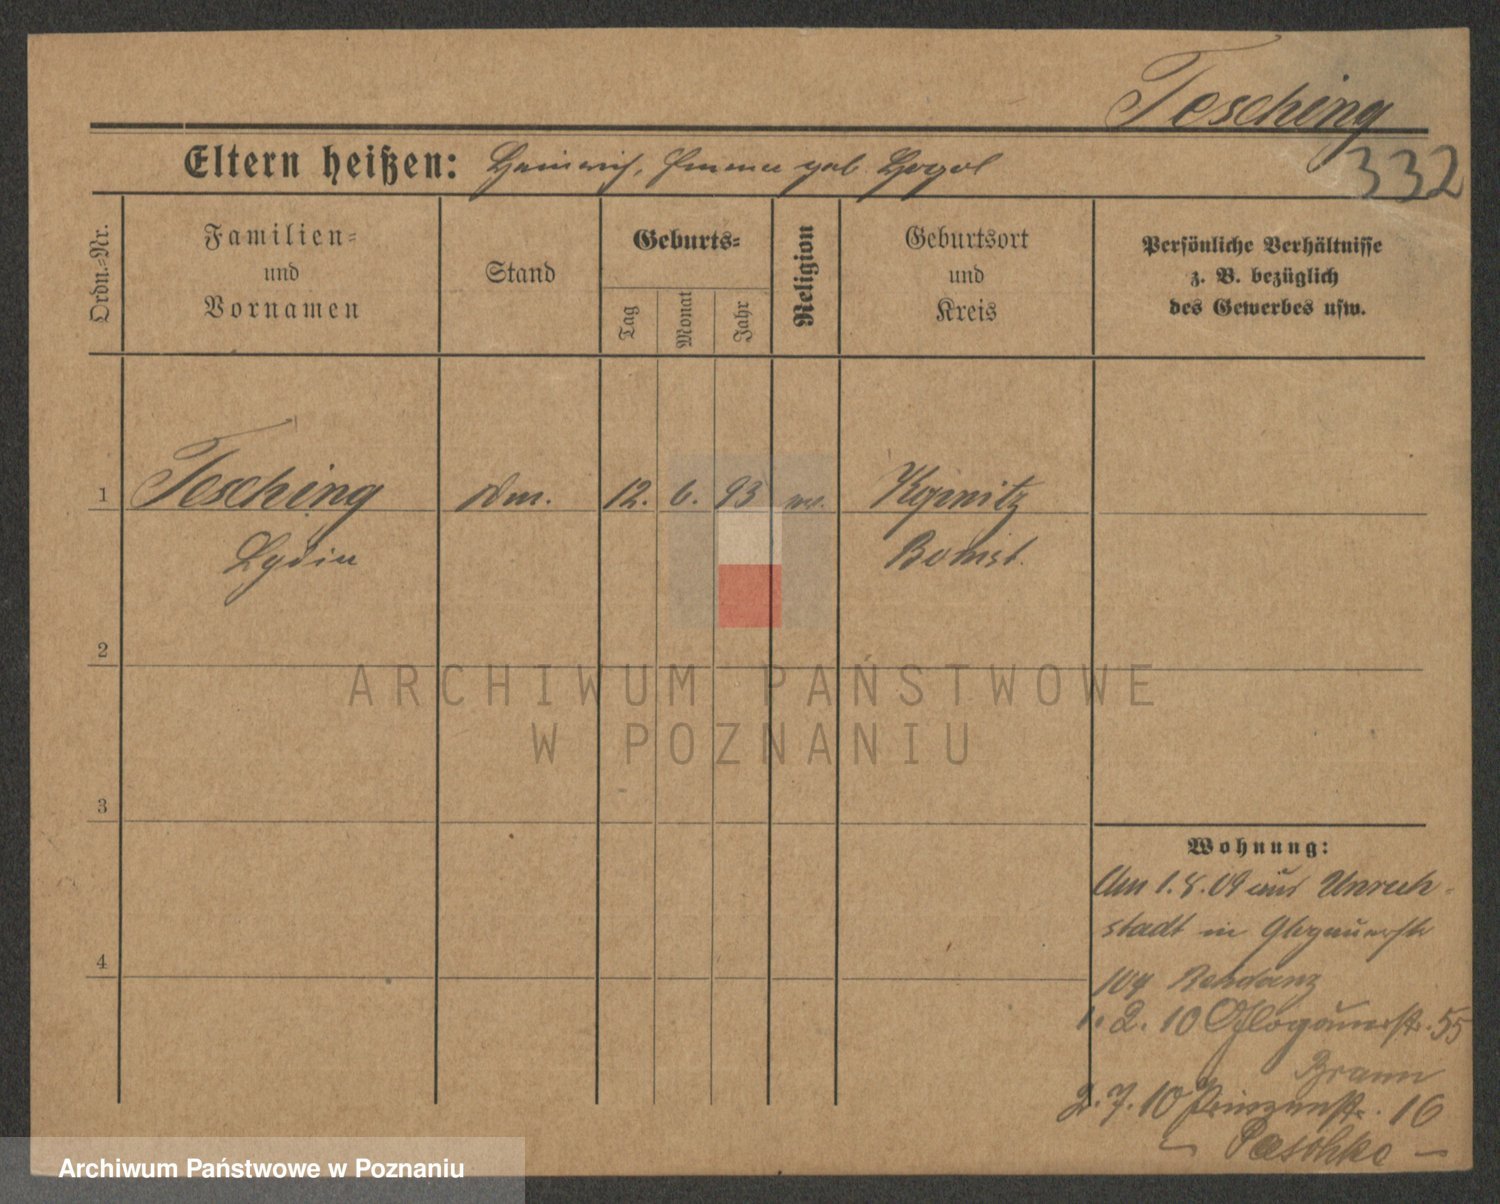 Tesching
332
Eltern heißen: Heinrich, Emma geb.
Ordn.-Nr.
Familien-
und
Vornamen
Stand
Geburts-
Tag
Monat
Jahr
Religion
Geburtsort
und
Kreis
Persönliche Verhältnisse
z. B. bezüglich
des Gewerbes usw.
1
Tesching
12. 6. 93
Kopnitz
Lydia
Bomst.
2
3
4
Wohnung:
Am 1.8.09 aus Unruh-
stadt in Glogauerstr
104
1. 2. 10 Glogauerstr. 55
2. 7. 10 Prinzenstr. 16
Paeschke
ARCHIWUM PAŃSTWOWE
W POZNANIU
Archiwum Państwowe w Poznaniu